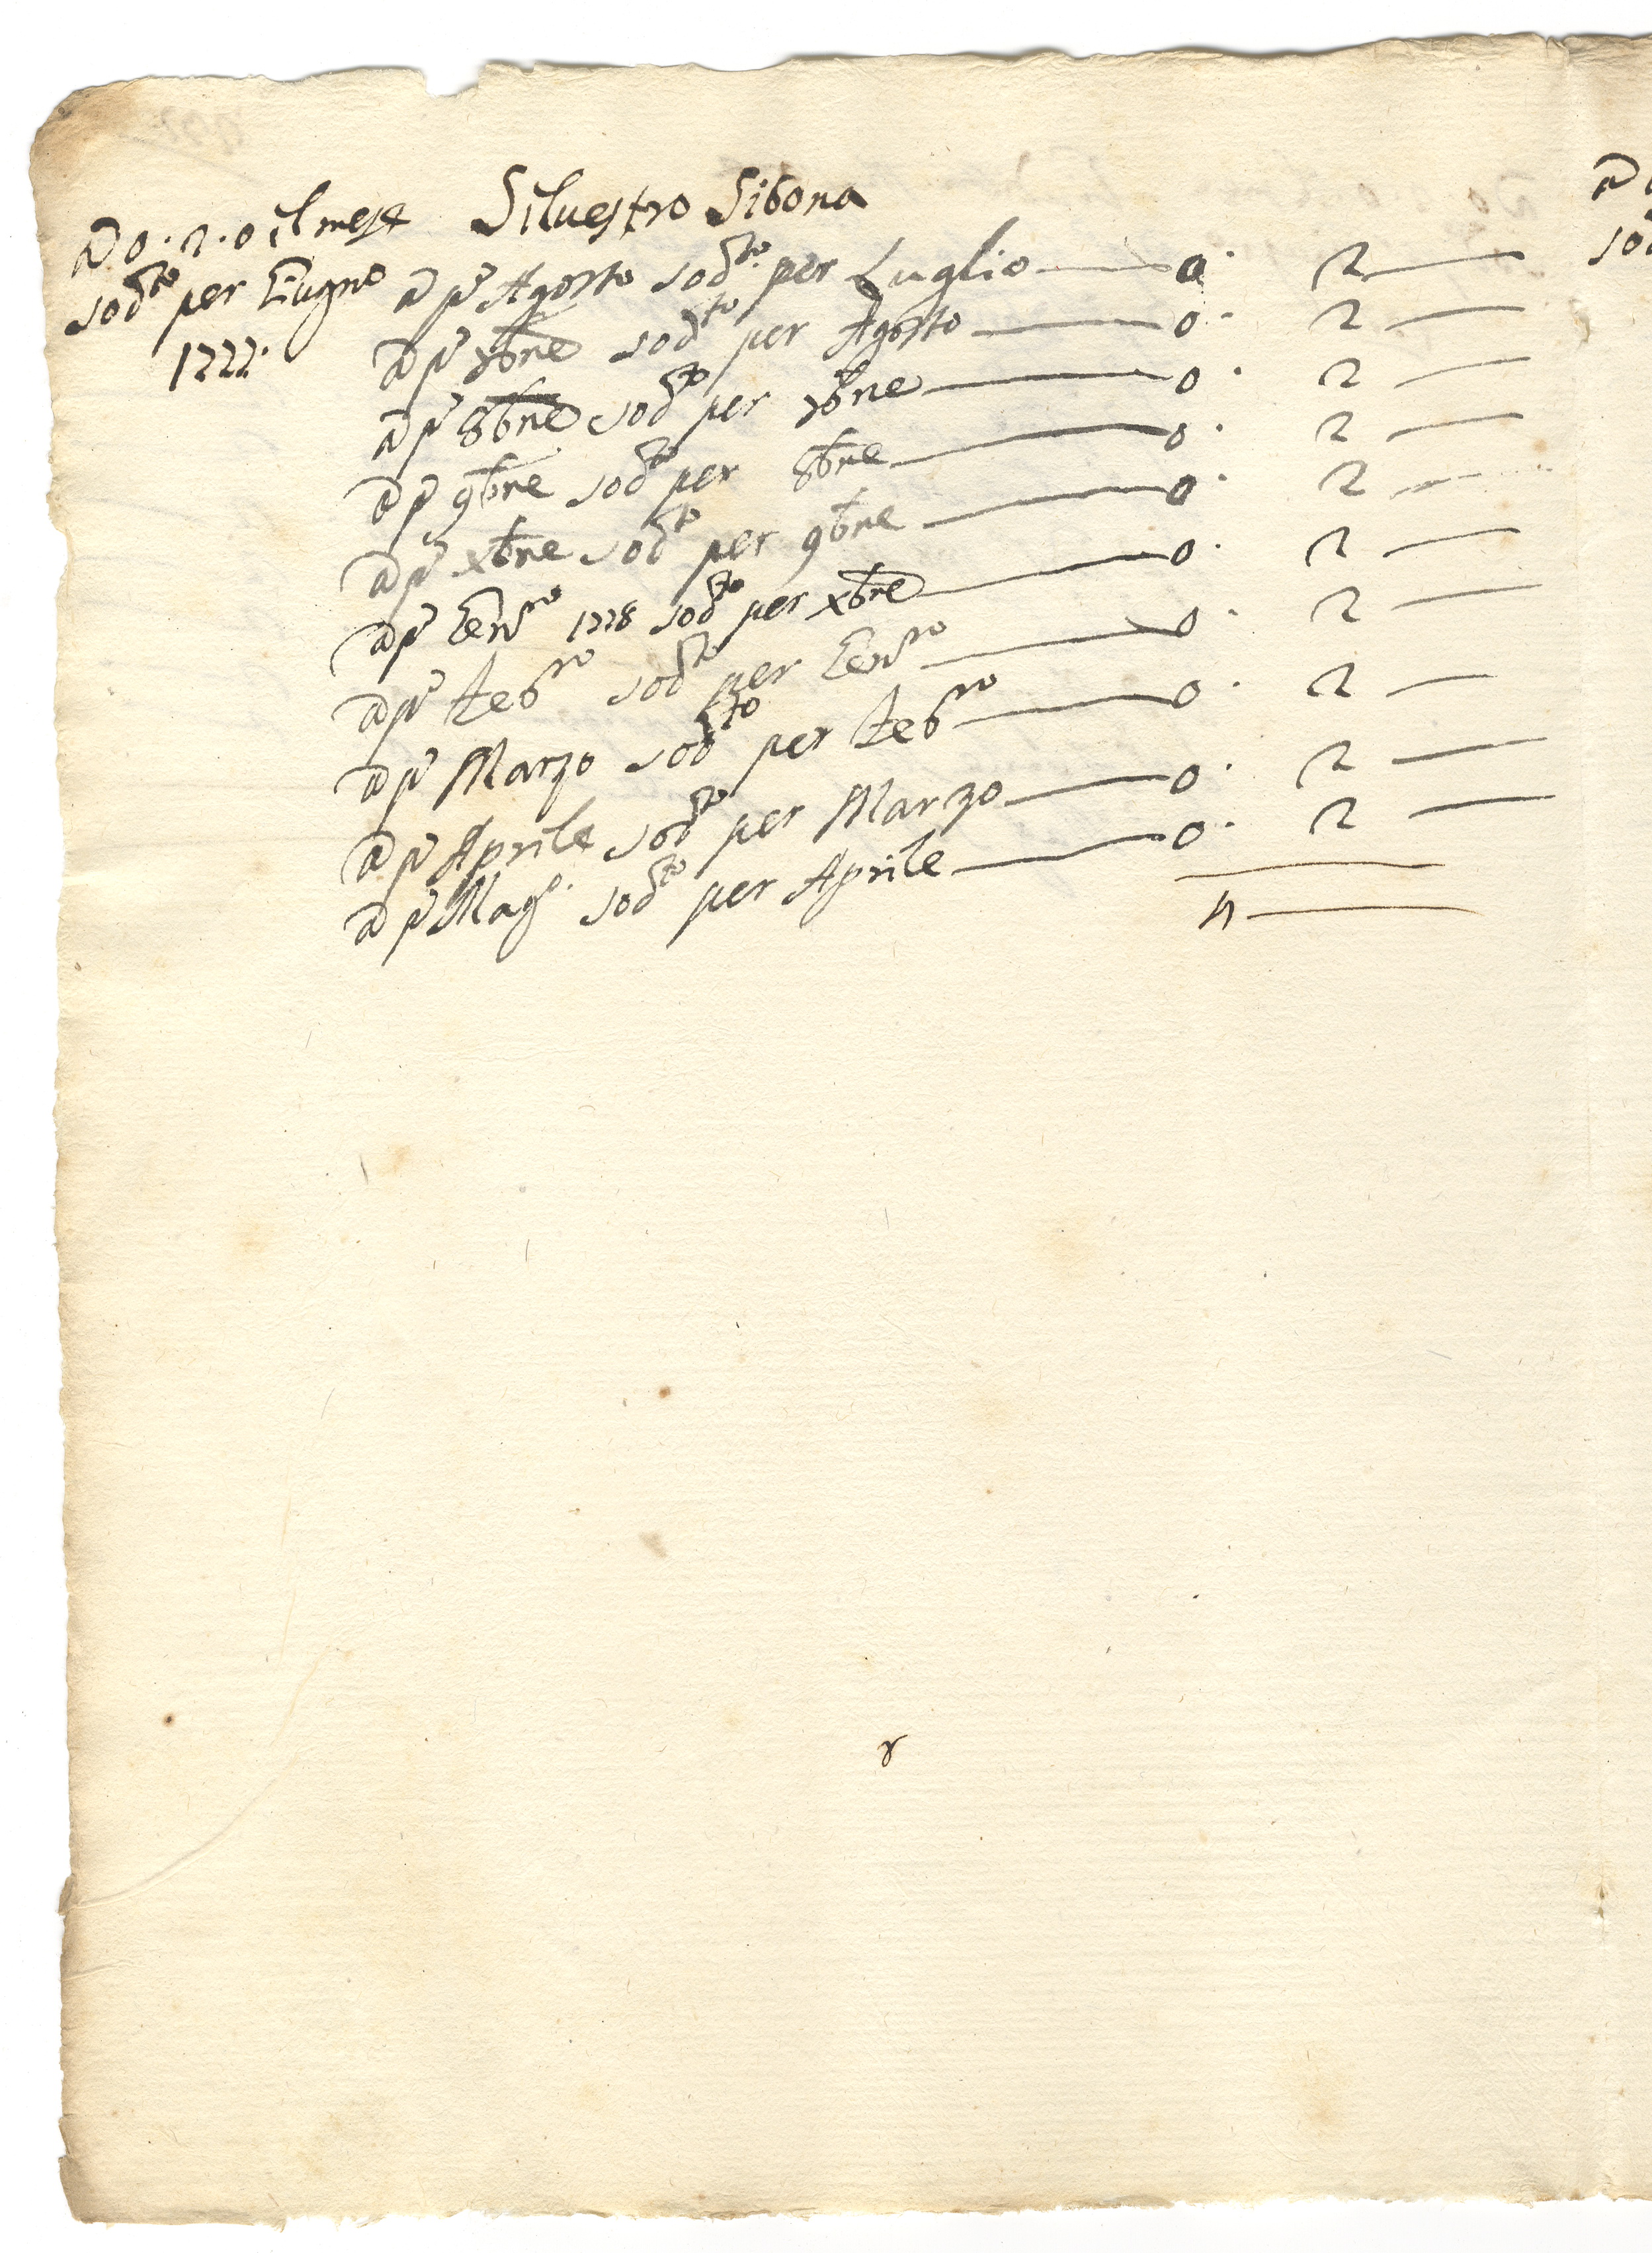 A 0. 2. 0 il mese Silvestro Sibona
sodto per Giugno
1777.
A pmo Agosto sodto per Luglio — 0. 2 —
A pmo 7bre sodto per Agosto — 0. 2 —
A pmo 8bre sodto per 7bre — 0. 2 —
A pmo 9bre sodto per 8bre — 0. 2 —
A pmo xbre sodto per 9bre — 0. 2 —
A pmo Genro 1778 sodto per xbre — 0. 2 —
A pmo Febro sodto per Genro — 0. 2 —
A pmo Marzo sodto per Febro — 0. 2 —
A pmo Aprile sodto per Marzo — 0. 2 —
A pmo Mago. sodto per Aprile — 0. 2 —